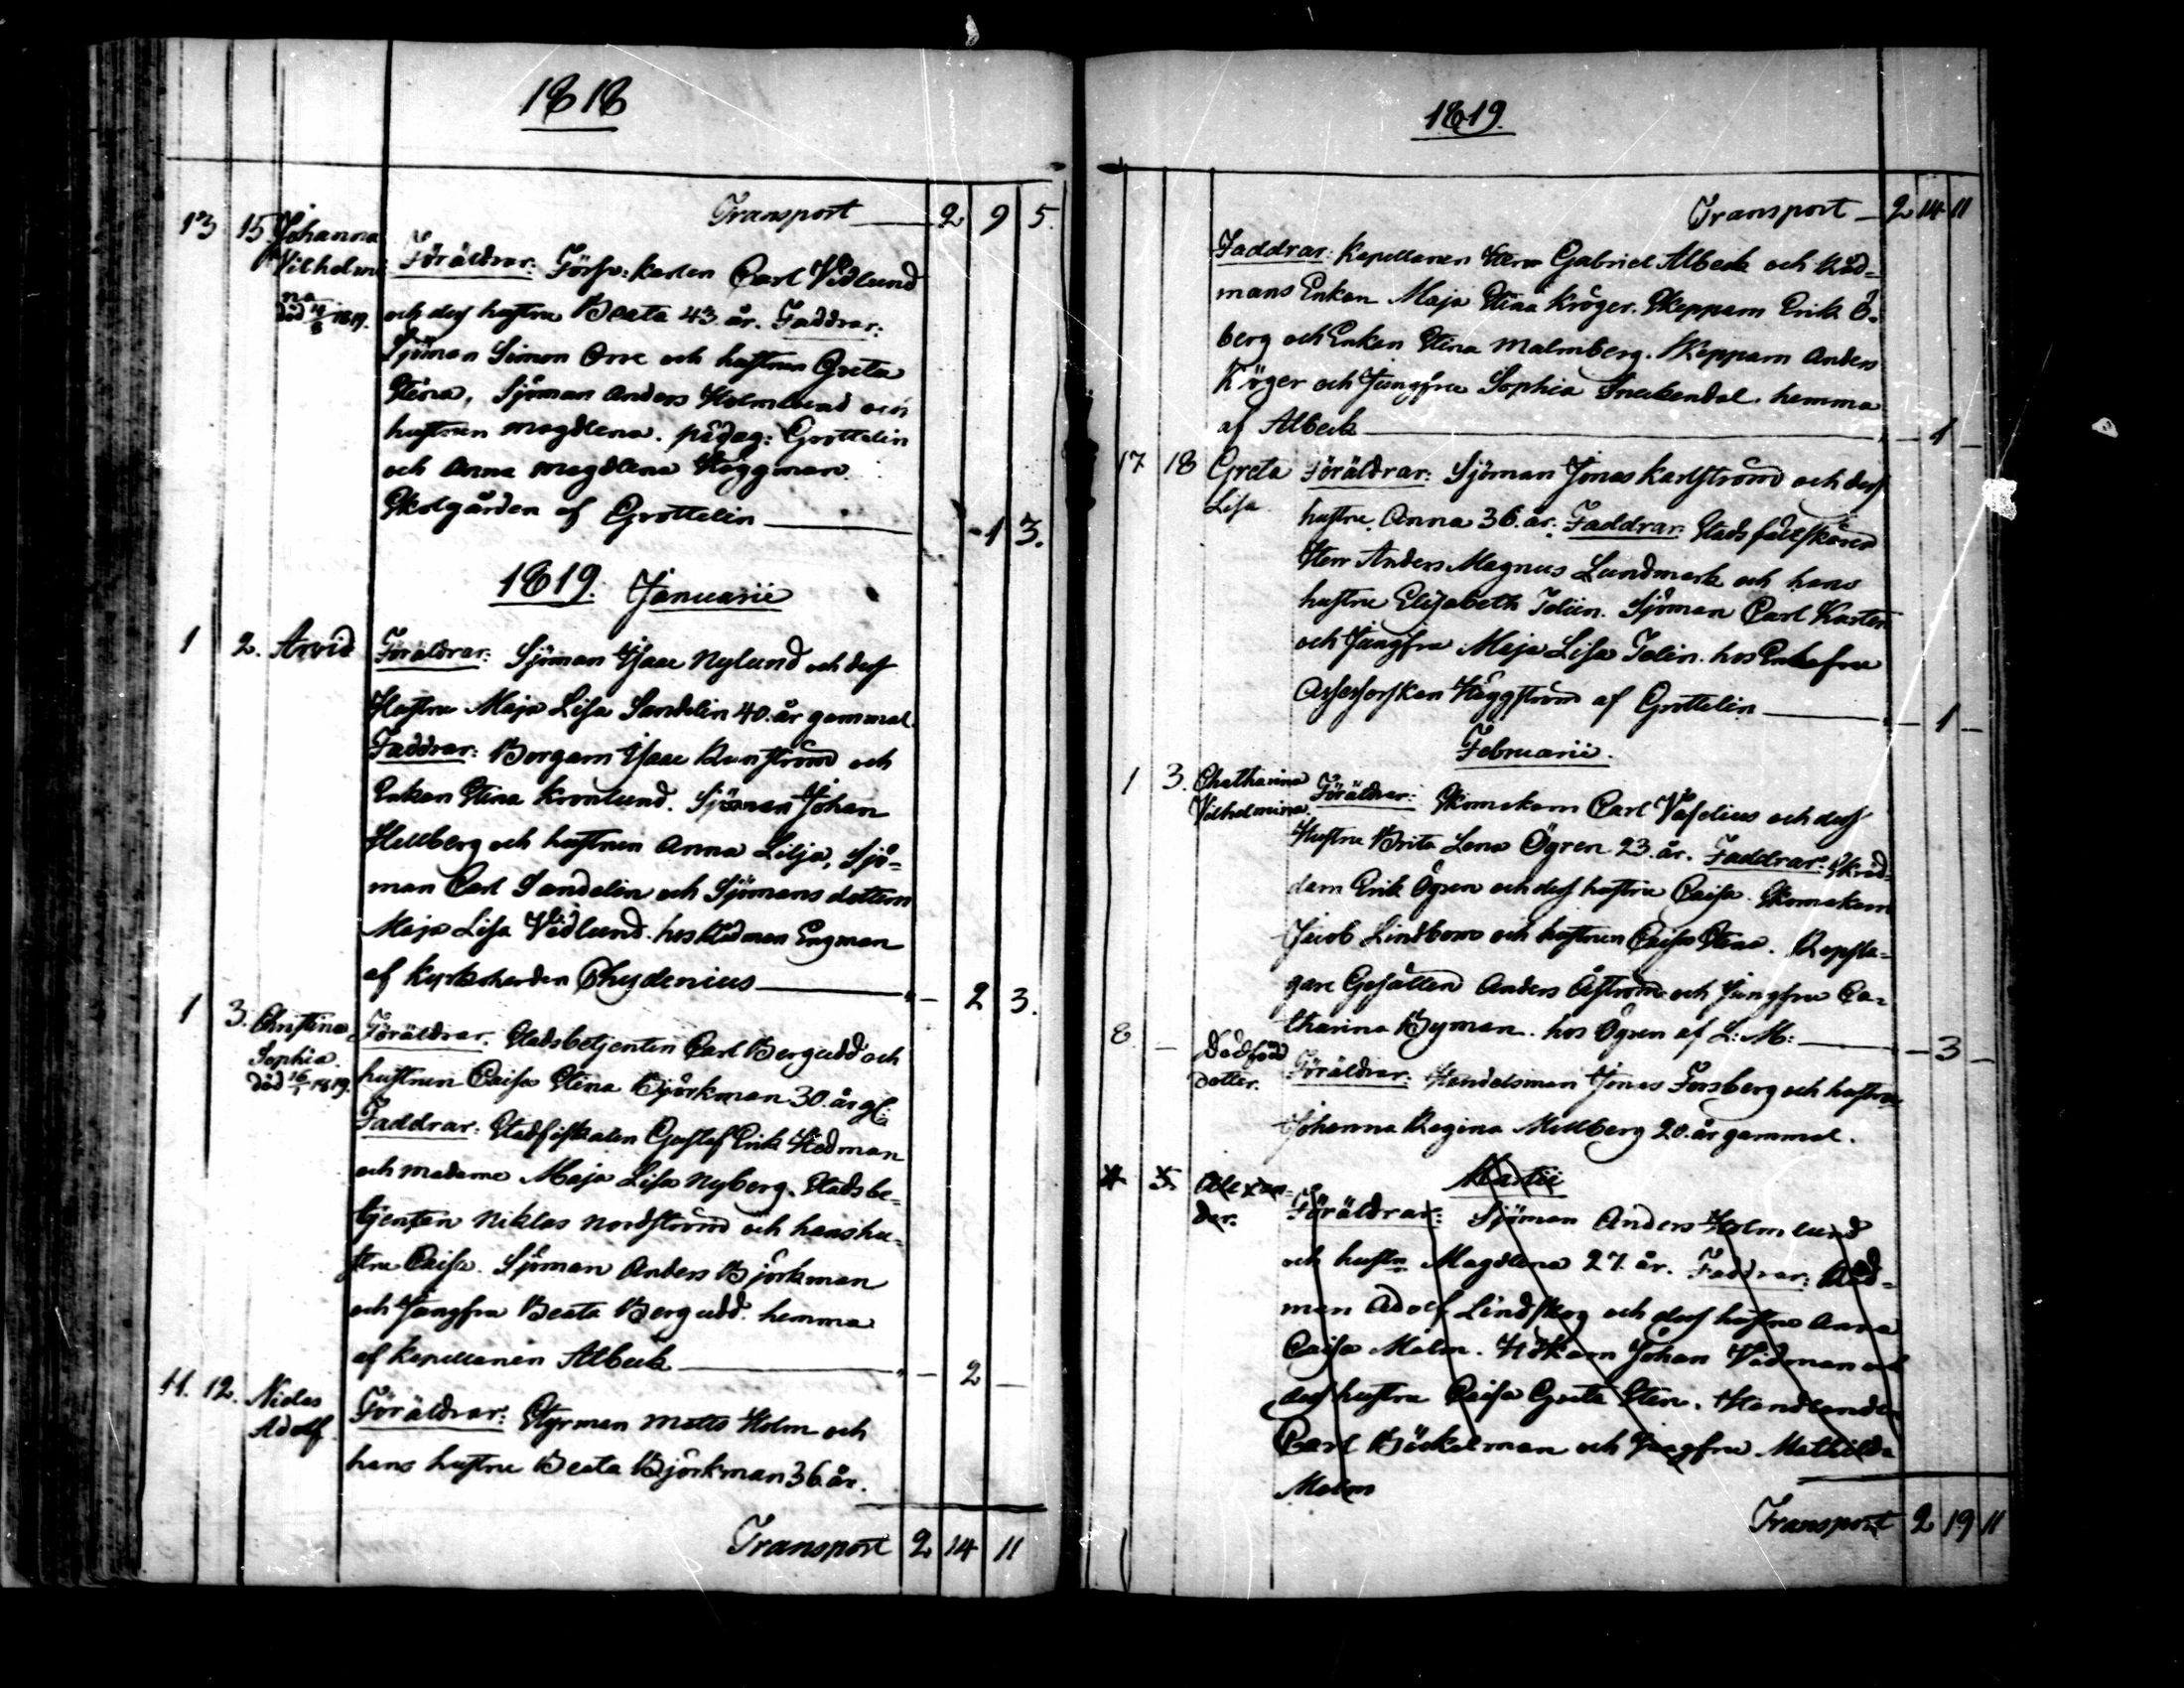 1818
Transport 2 9 5.
13 15. Johanna
Vilhelmi Föräldrar: Förs: karlen Carl Vidlund
na
död 11/8 1819. och dess hustru Beata 43 år. Faddrar:
Sjöman Simon Orre och hustrun Greta
Stina, Sjöman Anders Holmlund och
hustrun Magdlena. pädag: Grottelin
och Anna Magdlena Häggman.
Skolgården af Grottelin - 1 3.
1819. Januarii
1 2. Arvid Föräldrar: Sjöman Isaac Nylund och dess
Hustru Maja Lisa Sandelin 40. år gammal.
Faddrar: Borgarn Isaac Runström och
Enkan Stina Kronlund. Sjöman Johan
Hellberg och hustrun Anna Lilja, Sjö-
man Carl Sandelin och Sjömans dottern
Maja Lisa Vidlund. hos Rådman Engman
af Kyrkoherden Chydenius - 2 3.
1 3. Christina Föräldrar. Stadsbetjenten Carl Bergudd och
Sophia.
död 16/1 1819. hustrun Caisa Stina Björkman 30. år gl:
Faddrar: Stadsfiskalen Gustaf Erik Hedman
och madame Maja Lisa Nyberg. Stadsbe-
tjenten Niklas Nordström och hans hu-
stru Caisa. Sjöman Anders Björkman
och Jungfru Beata Bergudd. hemma
af Kapellanen Albeck - 2 -
11. 12. Niclas
Adolf. Föräldrar: Styrman Matts Holm och
hans hustru Beata Björkman 36. år.
Transport 2 14 11
1819.
Transport 2 14 11
Faddrar: Kapellanen Herr Gabriel Albeck och Råd-
mans Enkan Maja Stina Kröger. Skepparn Erik Ö-
berg och Enkan Stina Malmberg. Skepparn Anders
Kröger och Jungfru Sophia Snekendal. hemma
af Albeck - 1 -
17 18 Greta Föräldrar: Sjöman Jonas Karlström och dess
Lisa. hustru. Anna 36. år. Faddrar: Stads fältskären
Herr Anders Magnus Lundmark och hans
hustru Elisabeth Telin. Sjöman Carl Karsten
och Jungfru Maja Lisa Telin. hos Enkefru
Assessorskan Häggström af Grottelin - 1 -
Februarii.
1 3. Chatharina
Vilhelmina. Föräldrar: Skomakarn Carl Vaselius och dess
Hustru Brita Lena Ögren 23. år. Faddrar: Skräd-
darn Erik Ögren och dess hustru Caisa. Skomakarn
Jacob Lindbom och hustrun Caisa Stina. Repsla-
gare Gesällen Anders Åström och Jungfru Ca-
tharina Byman. hos Ögren af L: M: - 3 -
8 - Dödfödd
dotter. Föräldrar: Handelsman Jonas Forsberg och hustru
Johanna Regina Mellberg 20. år gammal.
Martii
4 5. Alexan-
der. Föräldrar: Sjöman Anders Holmlund
och hustru Magdlena 27. år. Faddrar: Råd-
man Adolf Lindskog och dess hustru Anna
Caisa Malm. Johan Vidman och
dess hustru Caisa Greta Sten. Handlanden
Carl Böckelman och Jungfru Mathilda
Malm
Transport 2 19 11